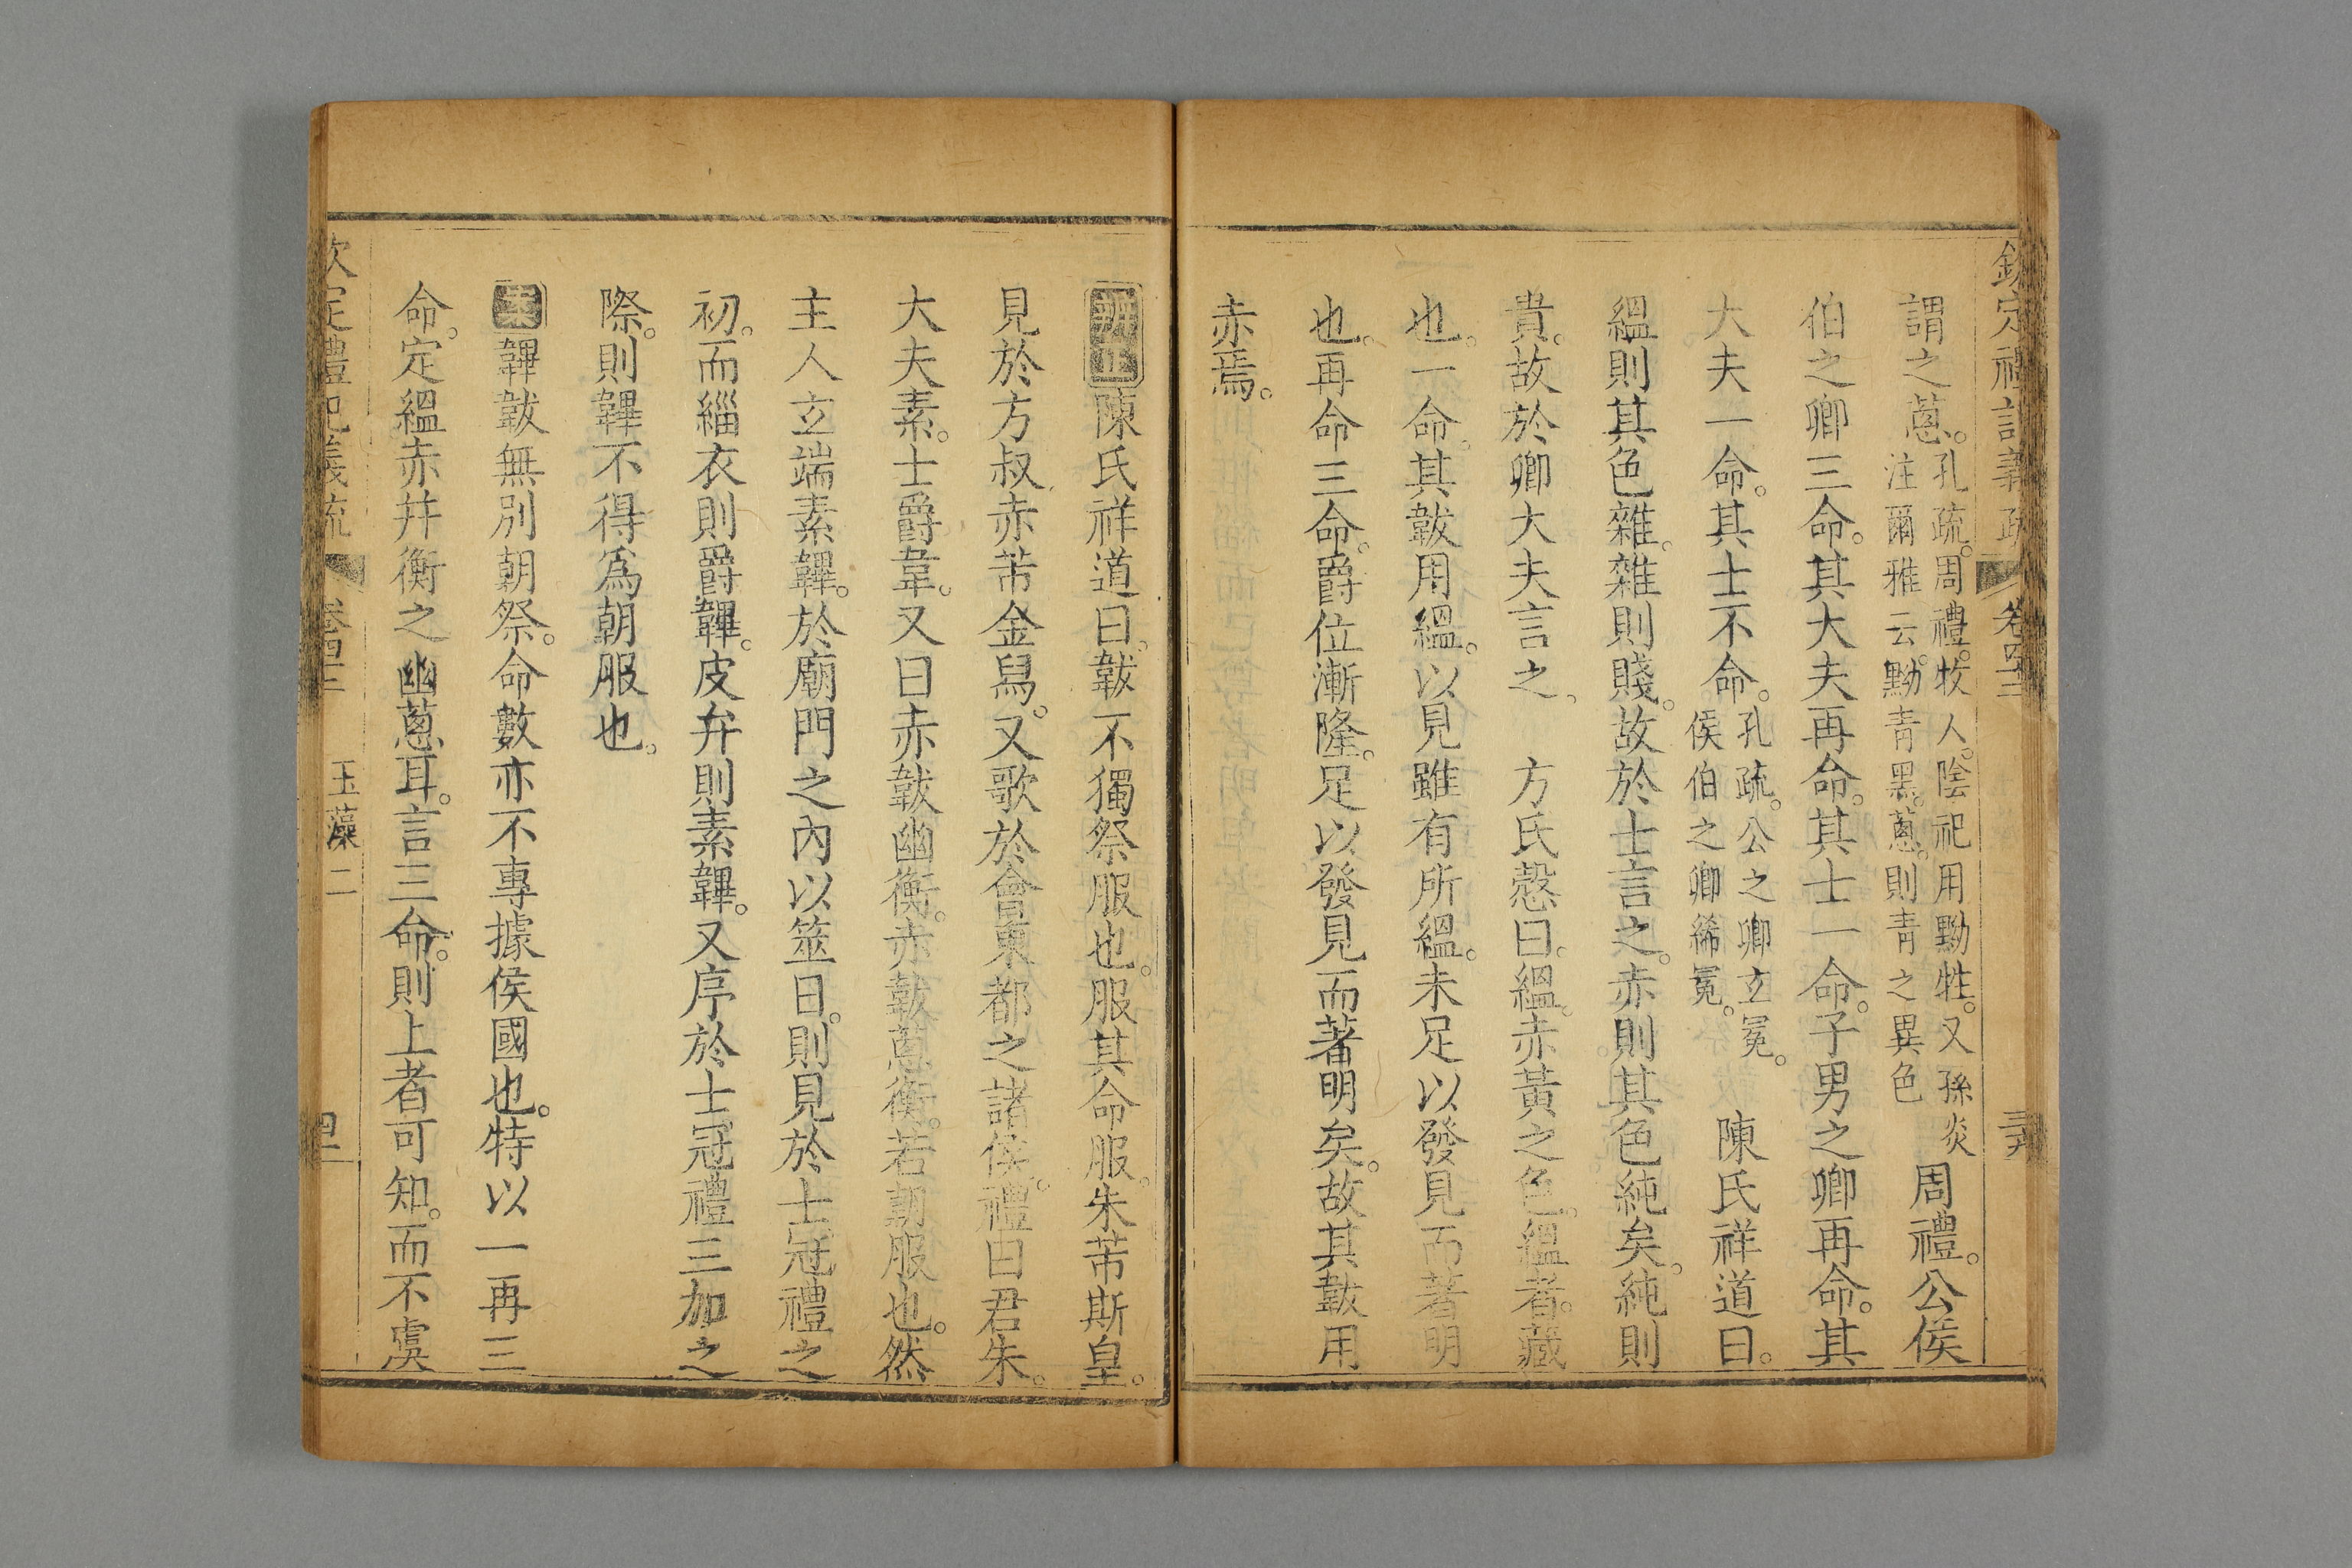 欽定禮記義疏 卷四十三 三六
謂之蔥。孔疏。周禮。牧人。陰祀用黝牲。又孫炎注爾雅云。黝青黑。蔥。則青之異色 周禮。公侯
伯之卿三命。其大夫再命。其士一命。子男之卿再命。其
大夫一命。其士不命。孔疏。公之卿玄冕。侯伯之卿絺冕。 陳氏祥道曰。
縕則其色雜。雜則賤。故於士言之。赤則其色純矣。純則
貴。故於卿大夫言之。 方氏慤曰。縕。赤黃之色。縕者。藏
也。一命。其韍用縕。以見雖有所縕。未足以發見而著明
也。再命三命。爵位漸隆。足以發見而著明矣。故其韍用
赤焉。
辨正陳氏祥道曰。韍不獨祭服也。服其命服。朱芾斯皇。
見於方叔赤芾金舄。又歌於會東都之諸侯。禮曰君朱。
大夫素。士爵韋。又曰赤韍幽衡。赤韍蔥衡。若朝服也。然
主人玄端素韠。於廟門之內以筮日。則見於士冠禮之
初。而緇衣則爵韠。皮弁則素韠。又序於士冠禮三加之
際。則韠不得爲朝服也。
案韠韍無別朝祭。命數亦不專據侯國也。特以一再三
命。定縕赤并衡之幽蔥耳。言三命。則上者可知。而不虞
欽定禮記義疏 卷四十三 玉藻二